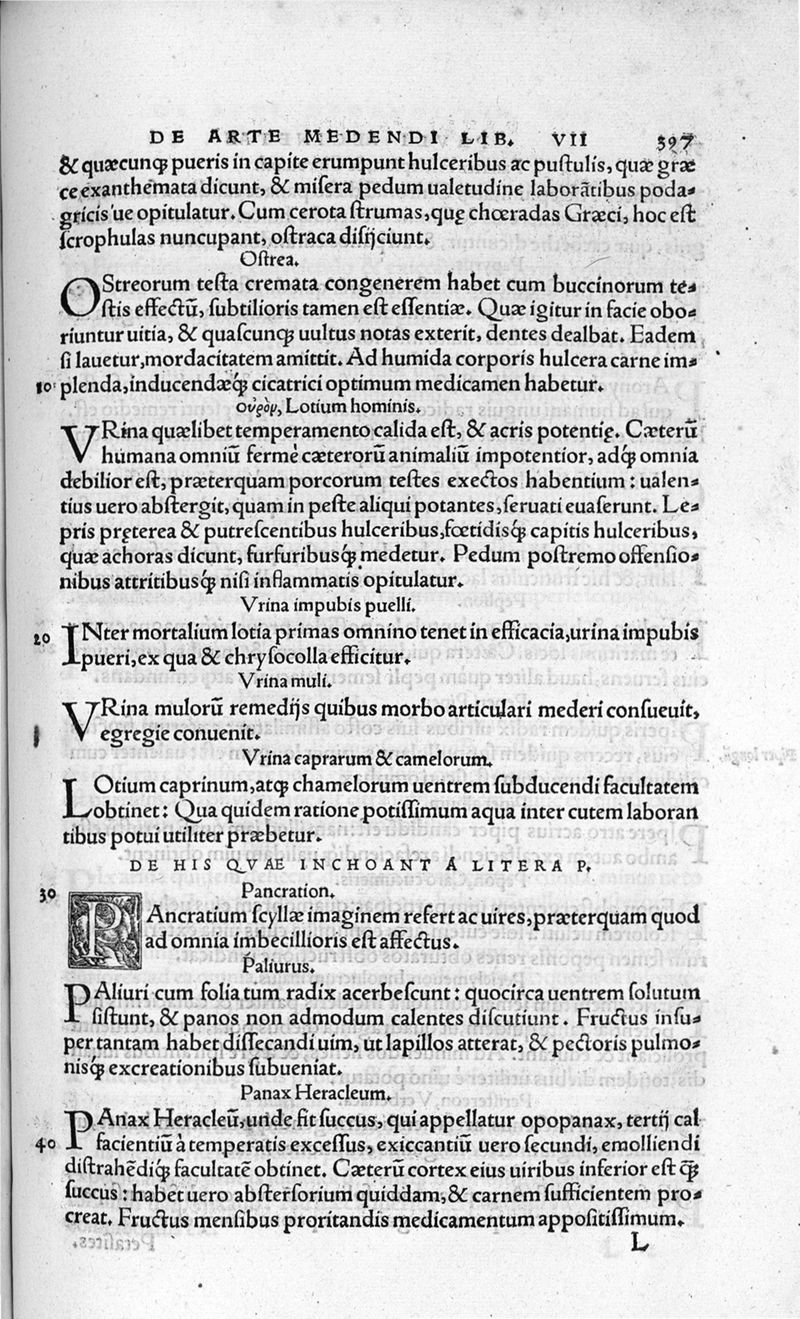 DE ARTE MEDENDI LIB. VII 397
& quæcunqꝫ pueris in capite erumpunt hulceribus ac pustulis, quæ græ
ce exanthemata dicunt, & misera pedum ualetudine laborãtibus poda-
gricis'ue opitulatur. Cum cerota strumas, quę chœradas Græci, hoc est
scrophulas nuncupant, ostraca disijciunt.
Ostrea.
OStreorum testa cremata congenerem habet cum buccinorum te-
stis effectũ, subtilioris tamen est essentiæ. Quæ igitur in facie obo-
riuntur uitia, & quascunqꝫ uultus notas exterit, dentes dealbat. Eadem
si lauetur, mordacitatem amittit. Ad humida corporis hulcera carne im-
10 plenda, inducendæqꝫ́ cicatrici optimum medicamen habetur.
οὐρὸν, Lotium hominis.
VRina quælibet temperamento calida est, & acris potentię. Cæterũ
humana omniũ fermè cæterorũ animaliũ impotentior, adqꝫ́ omnia
debilior est, præterquam porcorum testes exectos habentium : ualen-
tius uero abstergit, quam in peste aliqui potantes, seruati euaserunt. Le-
pris pręterea & putrescentibus hulceribus, fœtidisqꝫ́ capitis hulceribus,
quæ achoras dicunt, furfuribusqꝫ́ medetur. Pedum postremo offensio-
nibus attritibusqꝫ́ nisi inflammatis opitulatur.
Vrina impubis puelli.
20 INter mortalium lotia primas omnino tenet in efficacia, urina impubis
pueri, ex qua & chrysocolla efficitur.
Vrina muli.
VRina mulorũ remedijs quibus morbo articulari mederi consueuit,
egregie conuenit.
Vrina caprarum & camelorum.
LOtium caprinum, atqꝫ chamelorum uentrem subducendi facultatem
obtinet : Qua quidem ratione potissimum aqua inter cutem laboran
tibus potui utiliter præbetur.
DE HIS QVAE INCHOANT A LITERA P.
30 Pancration.
PAncratium scyllæ imaginem refert ac uires, præterquam quod
ad omnia imbecillioris est affectus.
Paliurus.
PAliuri cum folia tum radix acerbescunt : quocirca uentrem solutum
sistunt, & panos non admodum calentes discutiunt. Fructus insu-
per tantam habet dissecandi uim, ut lapillos atterat, & pectoris pulmo-
nisqꝫ́ excreationibus subueniat.
Panax Heracleum.
PAnax Heracleũ, unde fit succus, qui appellatur opopanax, tertij cal
40 facientiũ à temperatis excessus, exiccantiũ uero secundi, emolliendi
distrahẽdiqꝫ́ facultatẽ obtinet. Cæterũ cortex eius uiribus inferior est qꝫ́
succus : habet uero abstersorium quiddam, & carnem sufficientem pro-
creat. Fructus mensibus proritandis medicamentum appositissimum.
L